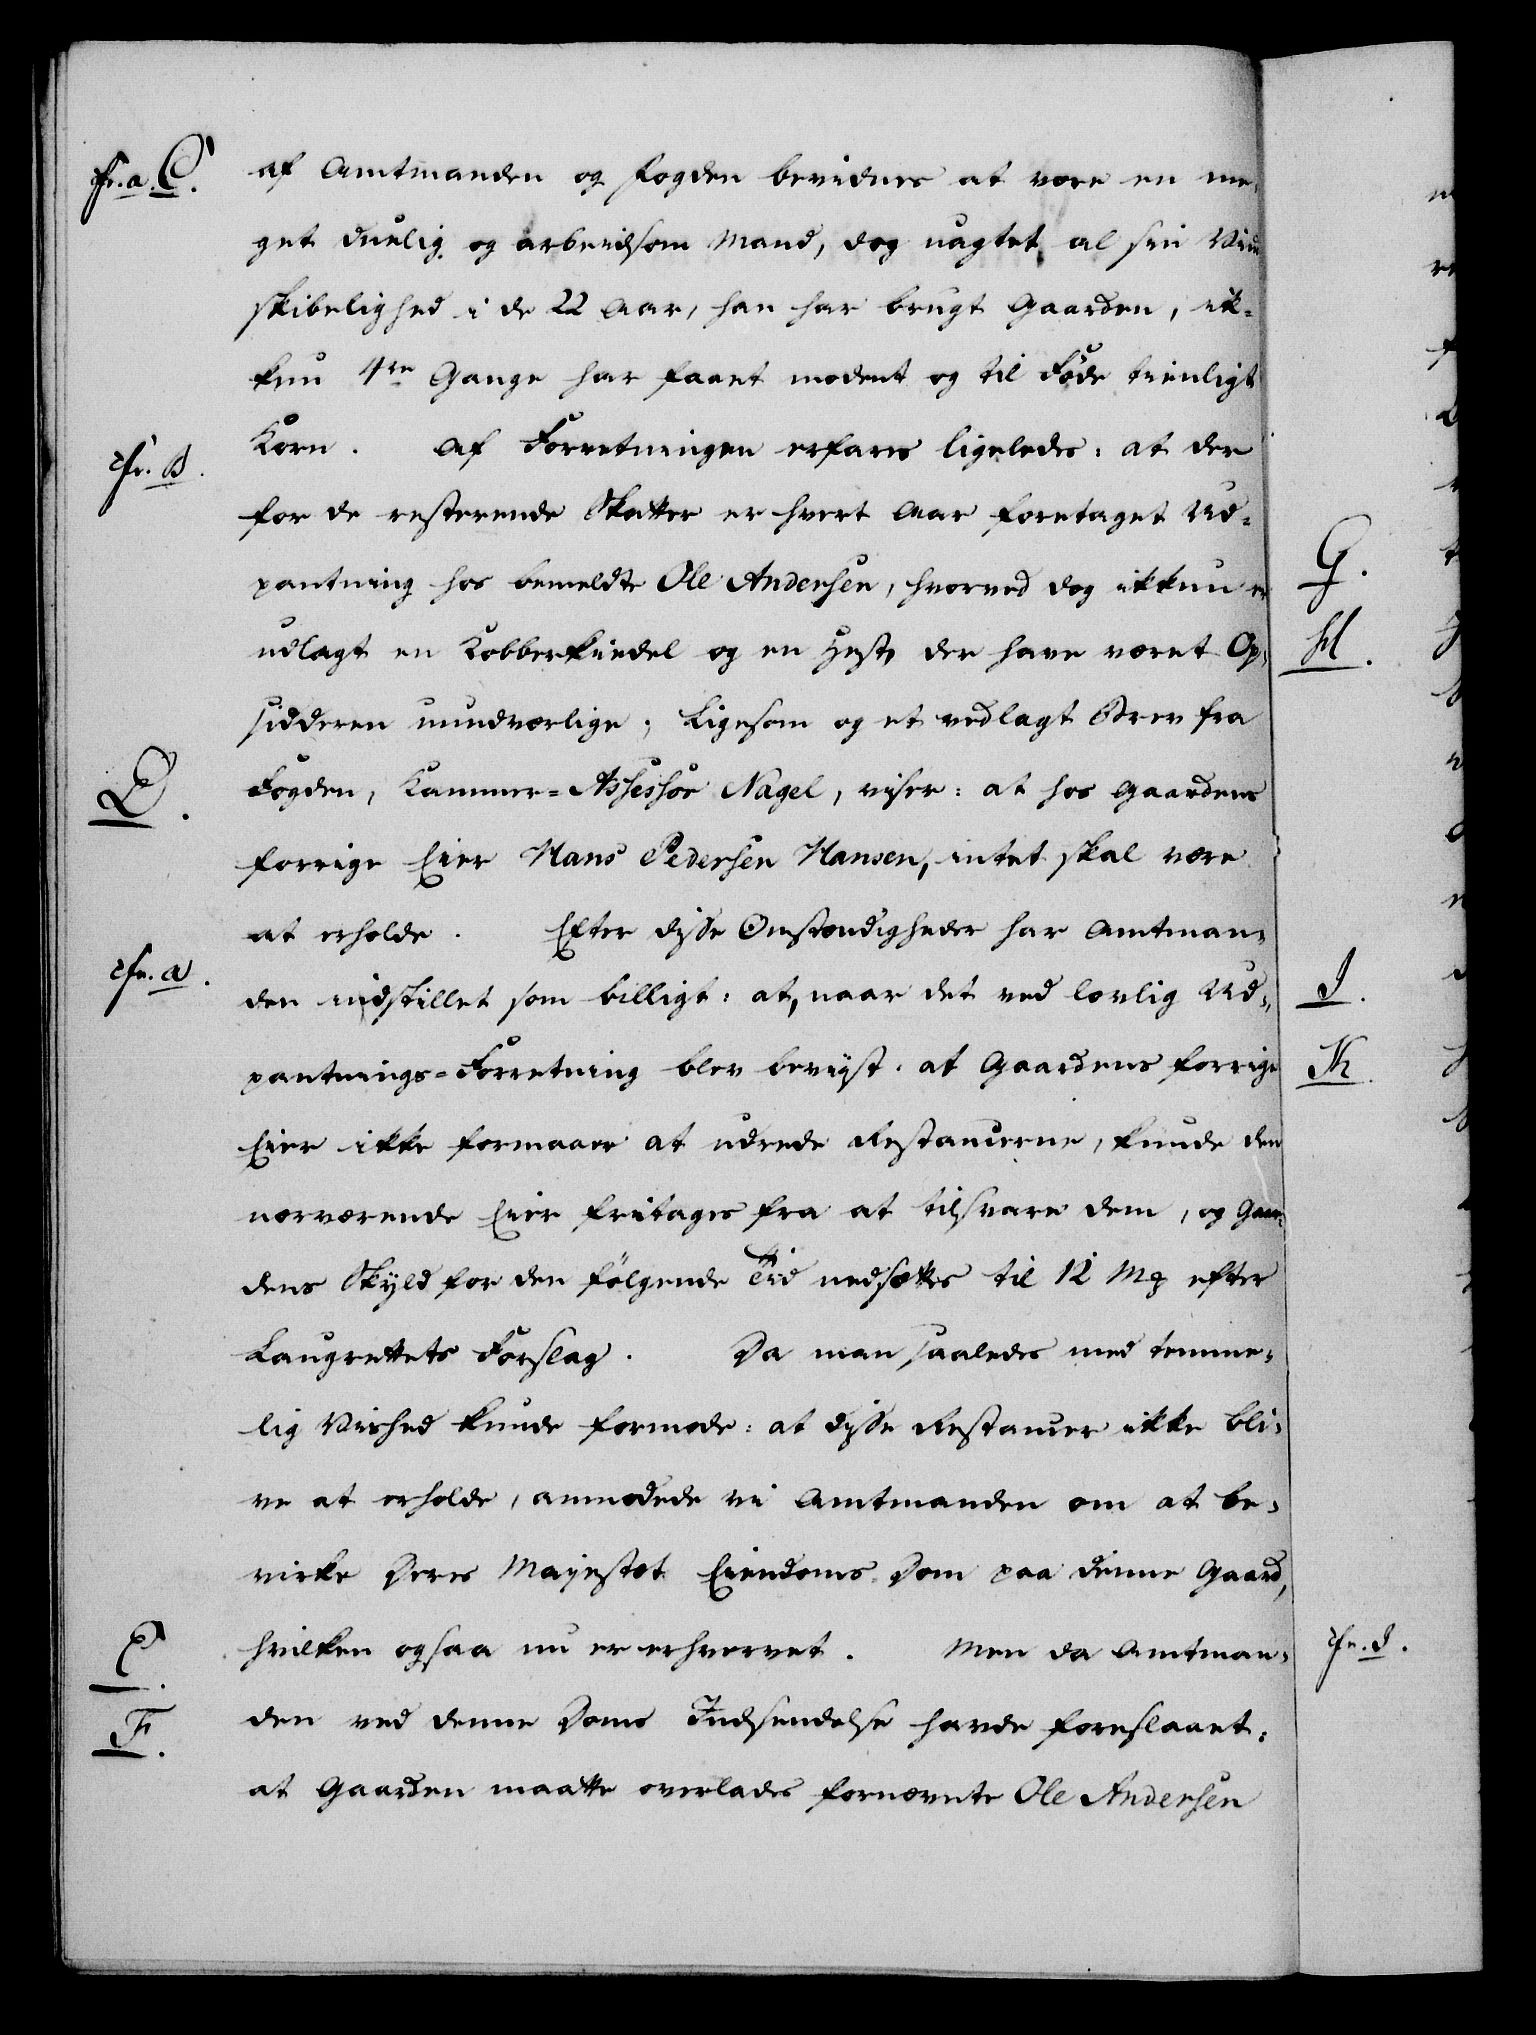 cfr. a. C.
af Amtmanden og Fogden bevidnes at være en me-
get duelig og arbeidsom Mand, dog uagtet al sin Vind
skibelighed i de 22 Aar, han har brugt Gaarden, ik-
kun 4re Gange har faaet modent og til Føde tienligt
cfr. B.
Korn. Af Forretningen erfares ligeledes: at der
for de resterende Skatter er hvert Aar foretaget Ud-
pantning hos bemeldte Ole Andersen, hvorved dog ikkun er
udlagt en Kobberkiedel og en Hest, der have været Op-
sidderen uundværlige; Ligesom og et vedlagt Brev fra
D.
Fogden, Kammer-Assessor Nagel, viser: at hos Gaardens
forrige Eier Hans Pedersen Hansen, intet skal være
at erholde. Efter disse Omstændigheder har Amtman-
cfr. a.
den indstillet som billigt: at, naar det ved lovlig Ud-
pantnings-Forretning blev beviist, at Gaardens forrige
Eier ikke formaaer at udrede Restancerne, kunde den
nærværende Eier fritages fra at tilsvare dem, og Gaar-
dens Skyld for den følgende Tid nedsættes til 12 Mk efter
Laugrettets Forslag. Da man saaledes med temme-
lig Vished kunde formode: at disse Restancer ikke bli-
ve at erholde, anmodede vi Amtmanden om at be-
virke Deres Majestæt Eiendoms-Dom paa denne Gaard,
E.
hvilken ogsaa nu er erhvervet. Men da Amtman-
F.
den ved denne Doms Indsendelse havde foreslaaet:
at Gaarden maatte overlades fornævnte Ole Andersen
G.
H.
I.
K.
cfr. I.